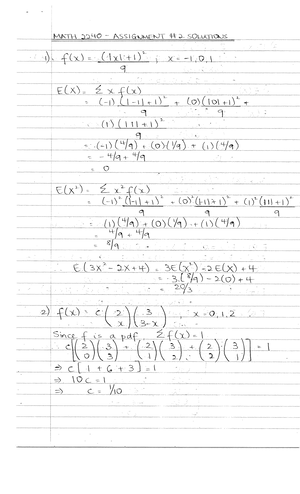 MATH 2240 - ASSIGNMENT #2 SOLUTIONS
1) f(x) = (|x|+1)² / 9 ; x = -1, 0, 1
E(X) = Σ x f(x)
= (-1)(|-1|+1)² / 9 + (0)(|0|+1)² / 9 +
(1)(|1|+1)² / 9
= (-1)(4/9) + (0)(1/9) + (1)(4/9)
= -4/9 + 4/9
= 0
E(X²) = Σ x² f(x)
= (-1)²(|-1|+1)² / 9 + (0)²(|0|+1)² / 9 + (1)²(|1|+1)² / 9
= (1)(4/9) + (0)(1/9) + (1)(4/9)
= 4/9 + 4/9
= 8/9
E(3X² - 2X + 4) = 3E(X²) - 2E(X) + 4
= 3(8/9) - 2(0) + 4
= 20/3
2) f(x) = c (2 x)(3 3-x) , x = 0, 1, 2
Since f is a pdf, Σ f(x) = 1
c[(2 0)(3 3) + (2 1)(3 2) + (2 2)(3 1)] = 1
⇒ c[1 + 6 + 3] = 1
⇒ 10c = 1
⇒ c = 1/10